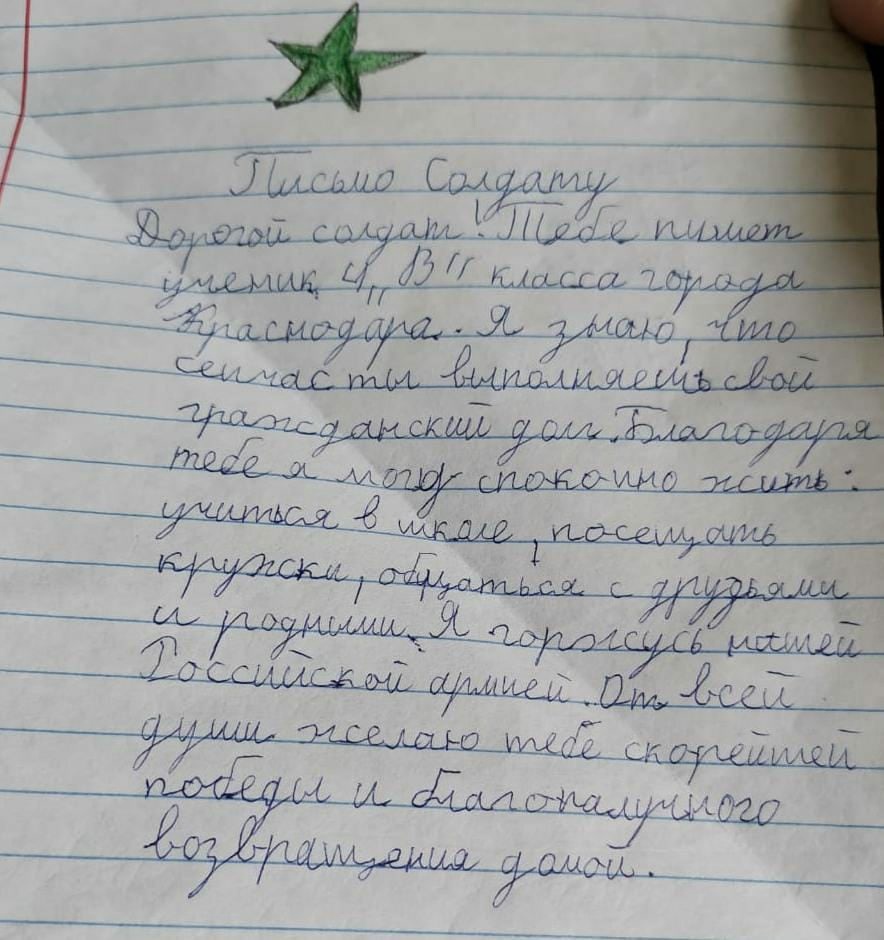 Письмо Солдату
Дорогой солдат! Тебе пишет
ученик 4 „В" класса города
Краснодара. Я знаю, что
сейчас ты выполняешь свой
гражданский долг. Благодаря
тебе я могу спокойно жить:
учиться в школе, посещать
кружки, общаться с друзьями
и родными. Я горжусь нашей
Российской армией. От всей
души желаю тебе скорейшей
победы и благопалучного
возвращения домой.